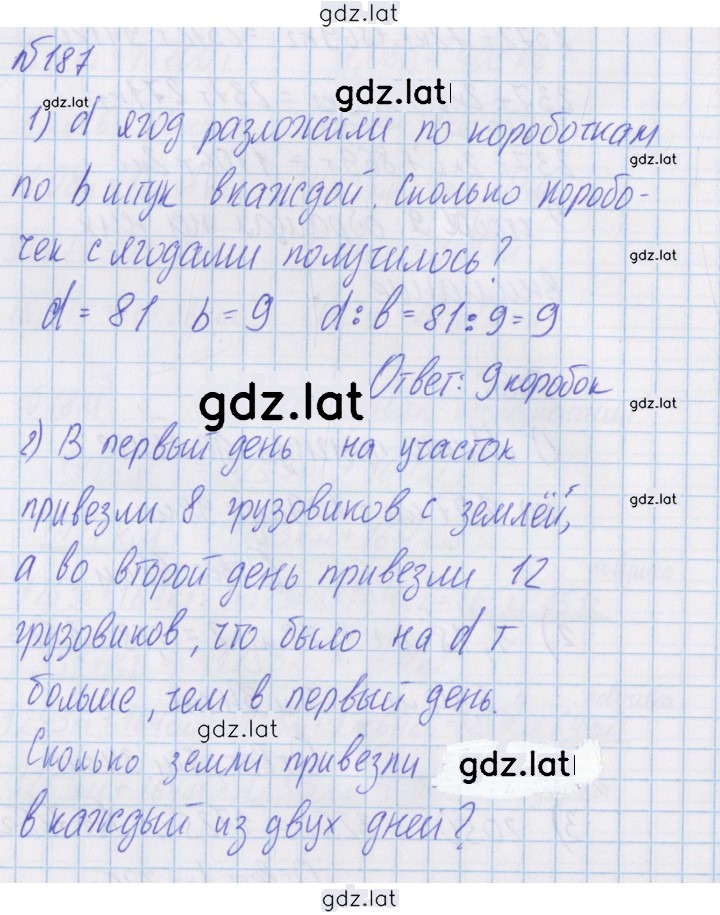 gdz.lat
№187
gdz.lat
gdz.lat
1) d ягод разложили по коробочкам
gdz.lat
по b штук в каждой. Сколько коробо-
чек с ягодами получилось?
gdz.lat
d = 81 b = 9 d : b = 81 : 9 = 9
Ответ: 9 коробок
gdz.lat
gdz.lat
2) В первый день на участок
привезли 8 грузовиков с землёй,
gdz.lat
а во второй день привезли 12
грузовиков, что было на d т
больше, чем в первый день.
gdz.lat
Сколько земли привезли
gdz.lat
в каждый из двух дней?
gdz.lat